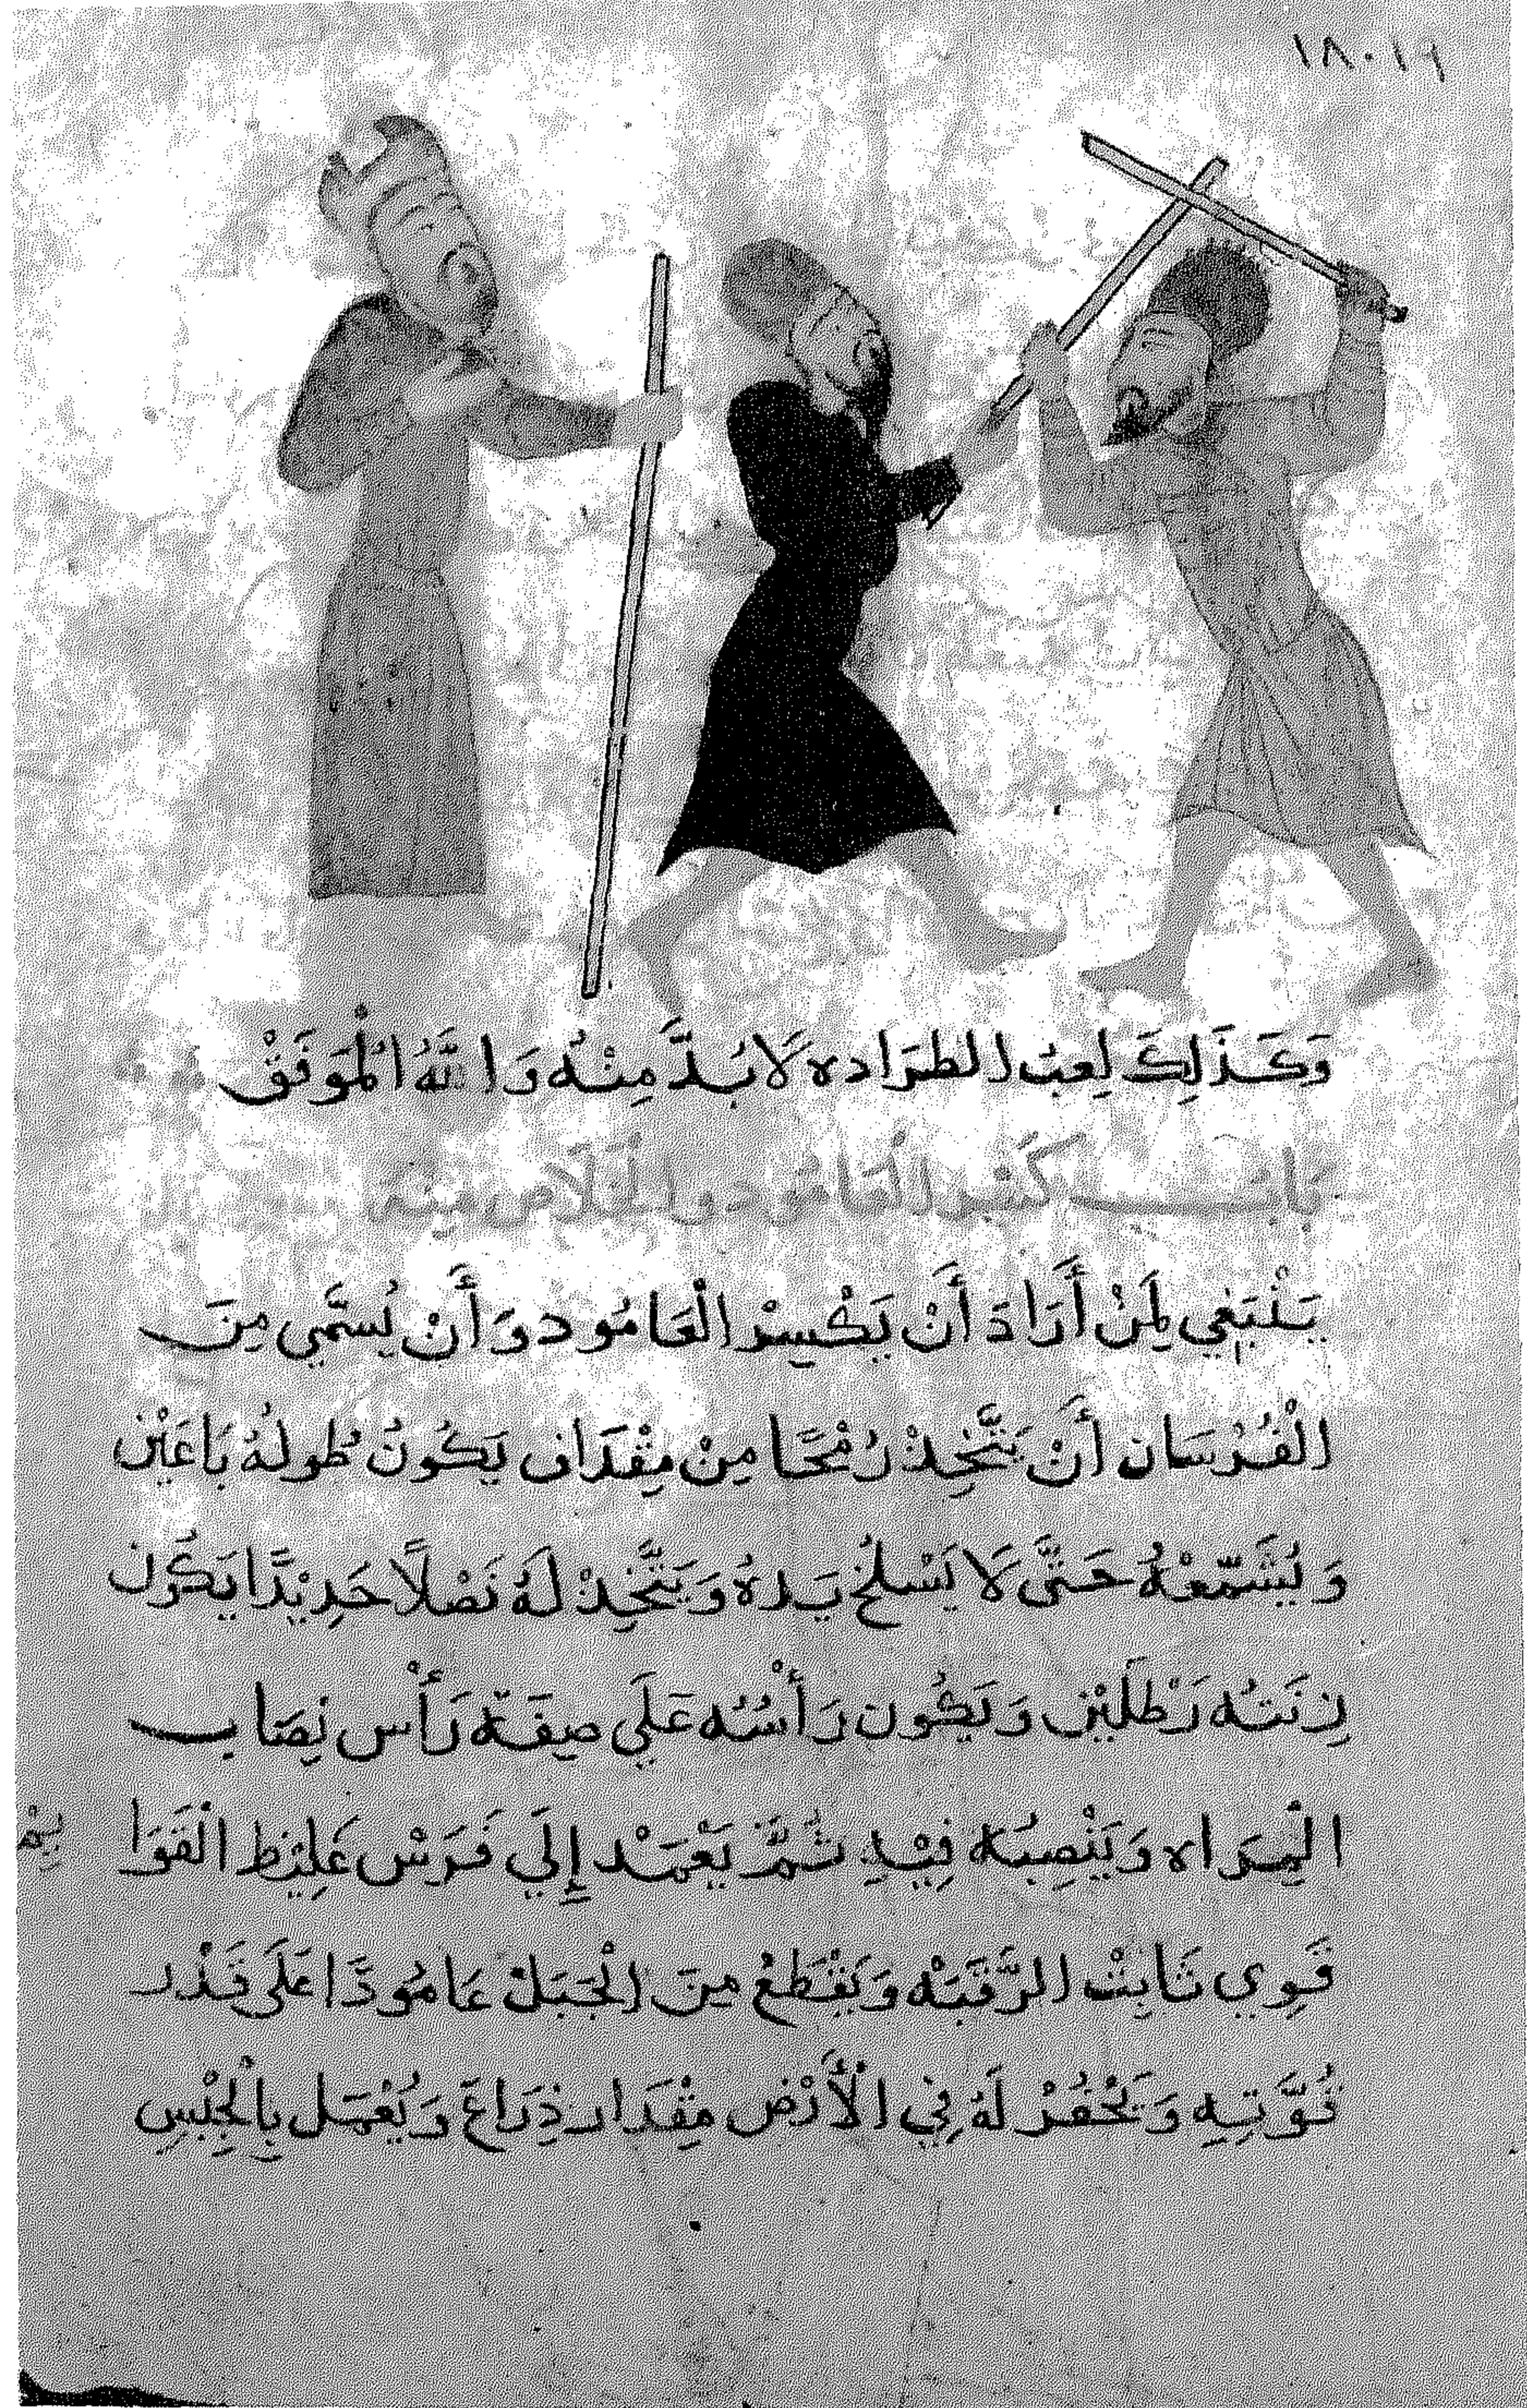 ١٨٠١٩
وَكَذَلِكَ لِعبُ الطرَاده لَابُدَّ مِنْهُ وَاللَّهُ الْمُوَفِقْ
بَابُ كَسْر العَامُود والخَلَاص مِنهُ
يَنْبَغِي لِمَنْ أَرَادَ أَنْ يَكْسِرْ الْعَامُود وَأَنْ يُسَمَّي مِنَ
الْفُرْسَان أَنْ يَتَّخِذْ رُمْحًا مِنْ مِقْدَاف يَكُونُ طُولهُ بَاعَيْن
وَ يُشَمّعْهُ حَتَّى لَا يَسْلخُ يَدهُ وَيَتَّخِذْ لَهُ نَصْلًا حَدِيْدًا يَكُون
زِنَتهُ رَطْلَيْن وَيَكُون رَأْسُهُ عَلَي صِفَة رَأْس نِصَاب
الْمِرَاه وَيَنْصِبُهُ فِيْهِ ثُمَّ يَعْمَدْ إِلَي فَرَسْ غَلِيْظ الْقَوَا
يِمْ
قَوِي ثَابِتْ الرَّقَبَهْ وَيَقْطَعْ مِنَ الْجَبَلْ عَامُودًا عَلَى قَدْر
قُوَّتِهِ وَيَحْفُرْ لَهُ فِي الْأَرْضِ مِقْدَار ذِرَاعْ وَيُعْمَل بِالْجِبْسِ